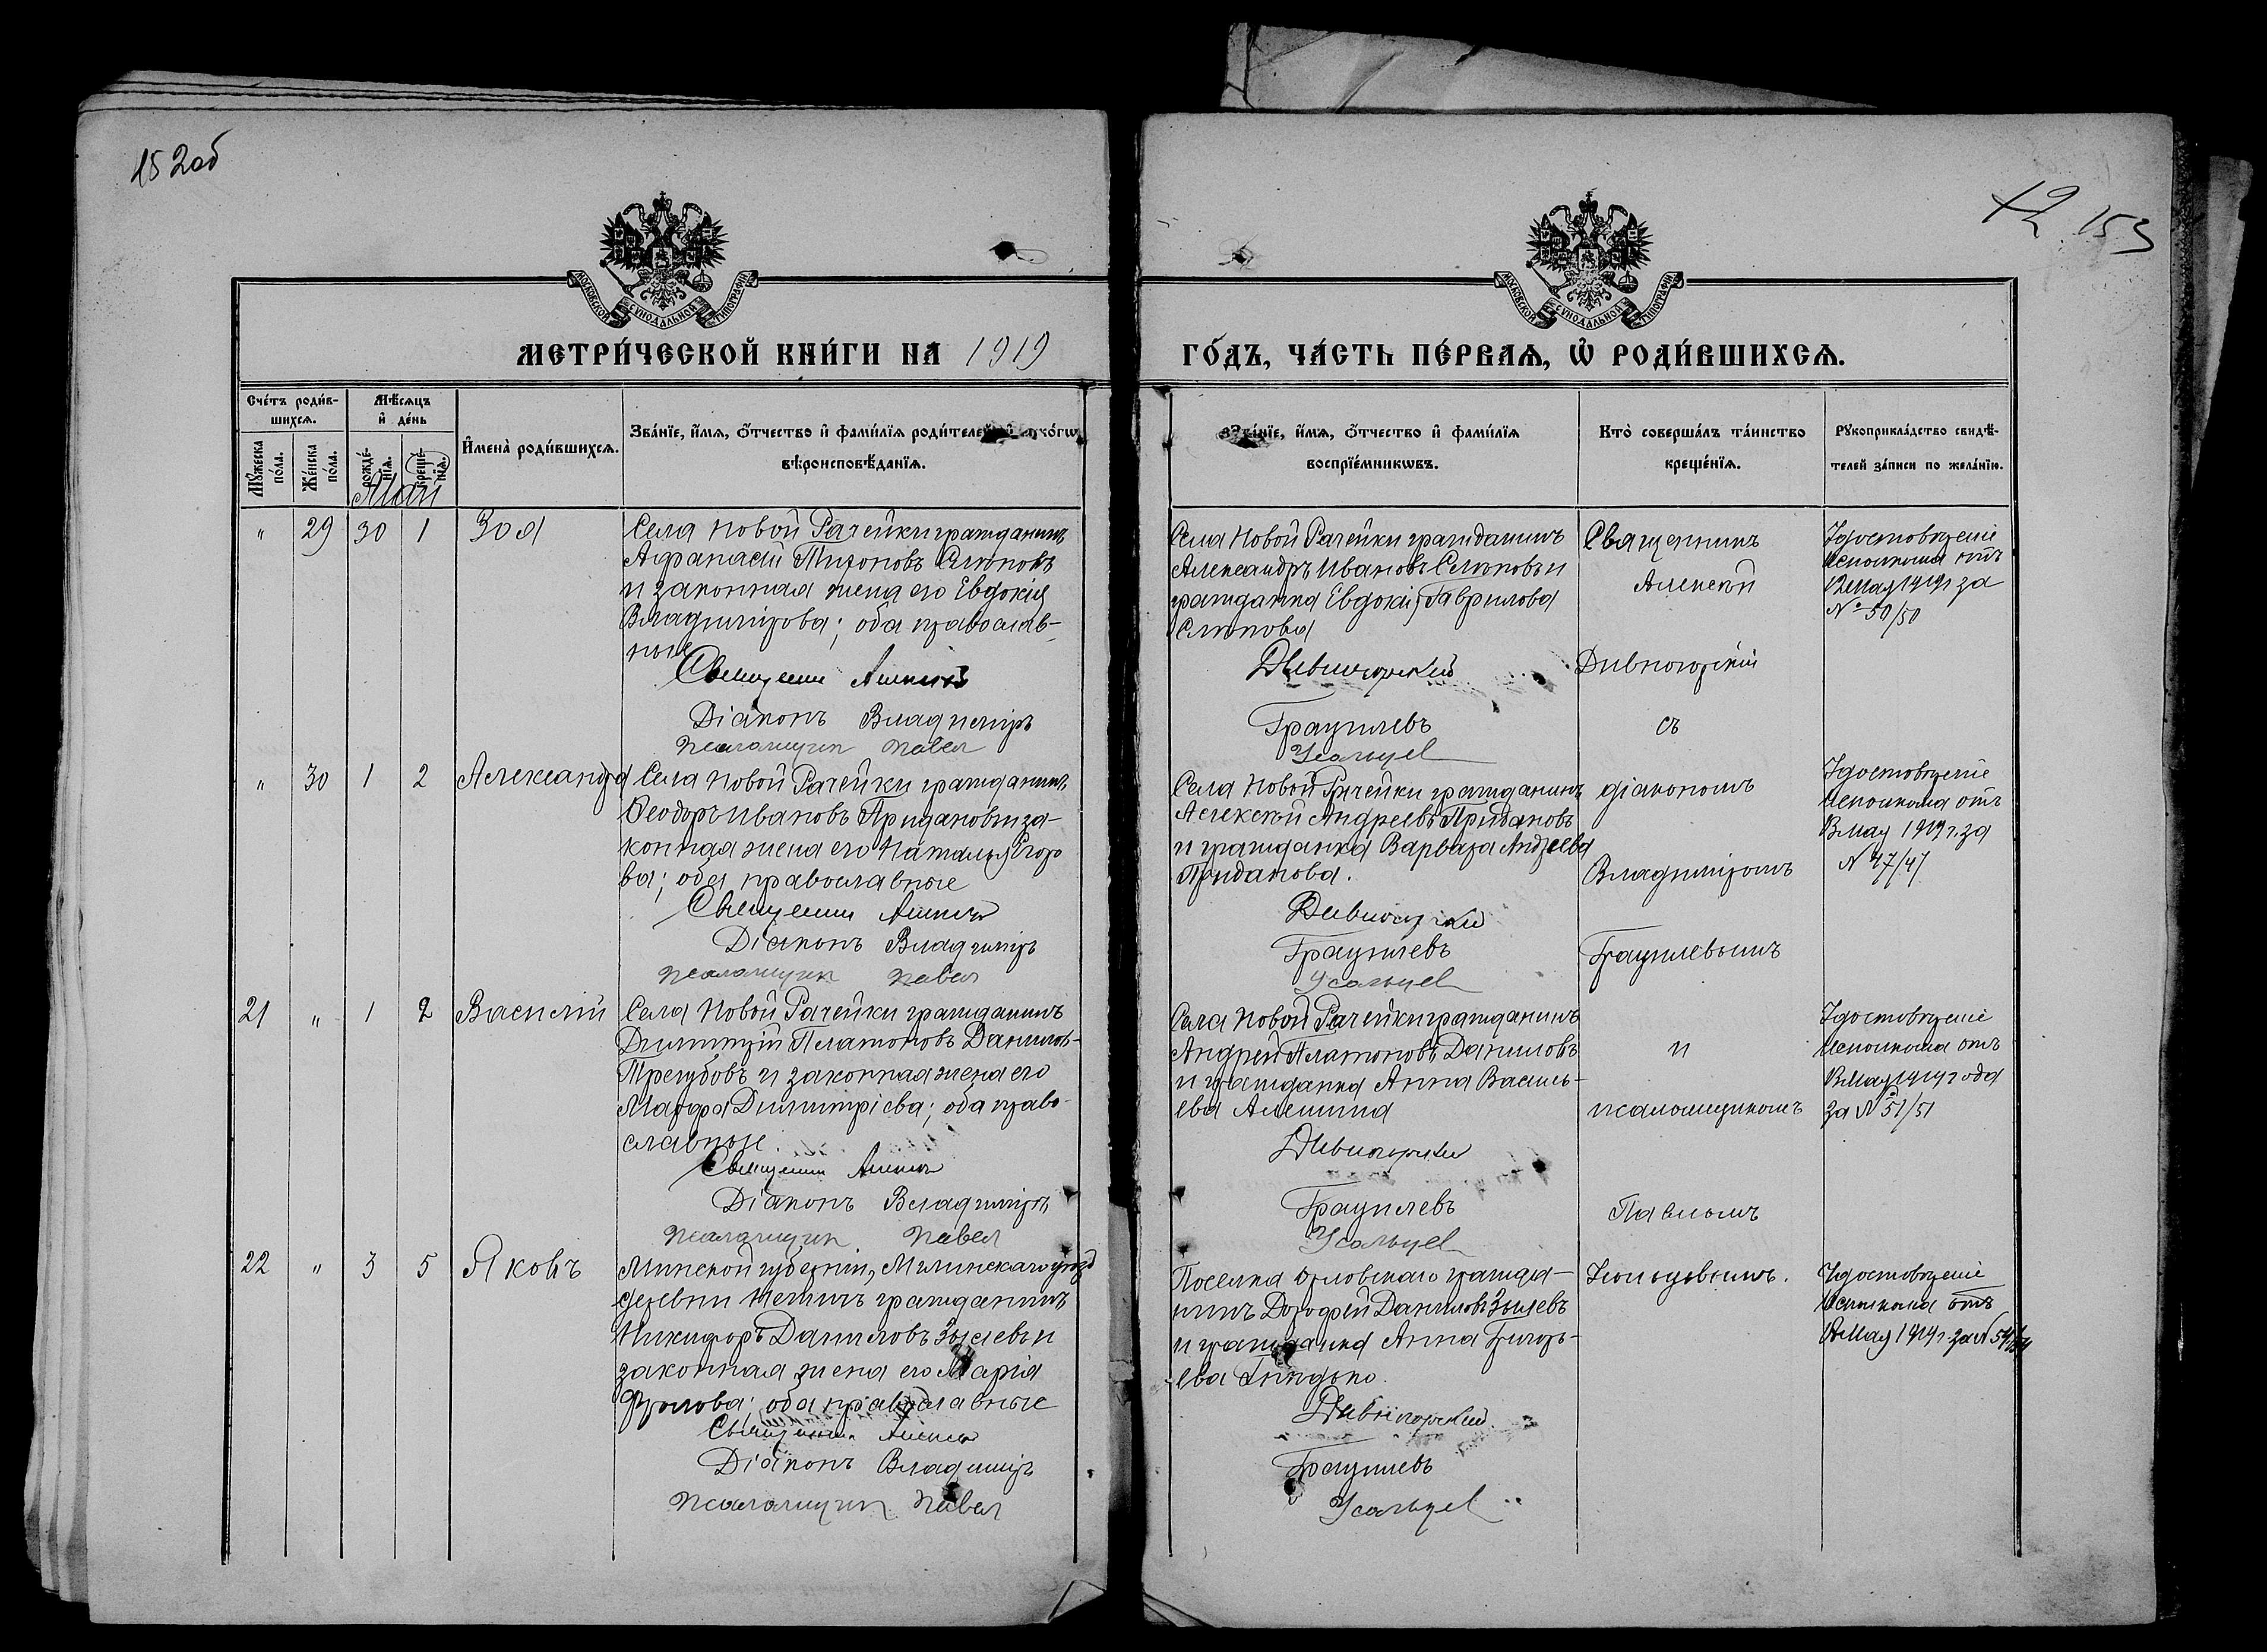 152об
12 153
МОСКОВСКОЙ СУНОДАЛЬНОЙ ТИПОГРАФІИ
МОСКОВСКОЙ СУНОДАЛЬНОЙ ТИПОГРАФІИ
МЕТРИ́ЧЕСКОЙ КНИ́ГИ НА 1919
ГО́ДЪ, ЧА́СТЬ ПЕ́РВАѦ, Ѡ҆ РОДИ́ВШИХСѦ.
Сче́тъ роди́в-
шихсѧ.
Мѣ́сѧцъ
и҆ де́нь
Мꙋ́жеска
по́ла.
Же́нска
по́ла.
рожде́-
нїѧ.
креще́-
нїѧ.
И҆мена̀ роди́вшихсѧ.
Зва́нїе, и҆́мѧ, ѻ҆́тчество и҆ фами́лїѧ роди́телей
вѣроисповѣ́данїѧ.
Зва́нїе, и҆́мѧ, ѻ҆́тчество и҆ фами́лїѧ
воспрїе́мникѡвъ.
Кто̀ соверша́лъ та́инство
креще́нїѧ.
Рꙋкоприкла́дство свидѣ́-
телей за́писи по жела́нїю.
Май
" 29 30 1 Зоя
Села Новой Рачейки гражданинъ
Афанасій Тихоновъ Слѣповъ
и законная жена его Евдокія
Владимірова; оба православ-
ные
Священникъ Алексѣй
Діаконъ Владиміръ
Псаломщик Павел
Села Новой Рачейки гражданинъ
Александръ Ивановъ Слѣповъ и
гражданка Евдокія Гаврилова
Слѣпова
Дивногорскій
Граціилевъ
Усольцев
Священникъ
Алексѣй
Дивногорскій
съ
Удостовѣреніе
Исполкома отъ
Мая 1919 г за
№ 50/50
" 30 1 2 Александра
Села Новой Рачейки гражданинъ
Ѳеодоръ Ивановъ Придановъ и за-
конная жена его Наталья Егоро
ва; оба православные
Священникъ Алексѣй
Діаконъ Владиміръ
Псаломщик Павел
Села Новой Рачейки гражданинъ
Алексѣй Андреевъ Придановъ
и гражданка Варвара Андреева
Приданова.
Дивногорскій
Граціилевъ
Усольцев
діакономъ
Владиміромъ
Граціилевымъ
Удостовѣреніе
Исполкома отъ
Мая 1919 г. за
№ 47/47
21 " 1 2 Василій
Села Новой Рачейки гражданинъ
Димитрій Платоновъ Даниловъ-
Трегубовъ и законная жена его
Марѳа Димитріева; оба право-
славные.
Священникъ Алексѣй
Діаконъ Владиміръ
Псаломщик Павел
Села Новой Рачейки гражданинъ
Андрей Платоновъ Даниловъ
и гражданка Анна Василь-
ева Алешина
Дивногорскій
Граціилевъ
Усольцев
и
псаломщикомъ
Павломъ
Удостовѣреніе
Исполкома отъ
Мая 1919 года
за № 51/51
22 " 3 5 Яковъ
Минской губерніи, Минскаго уѣзд
деревни гражданинъ
Никифоръ Даниловъ Зылевъ и
законная жена его Марія
Фролова; оба православные
Священникъ Алексѣй
Діаконъ Владиміръ
Псаломщик Павел
Поселка Орловскаго гражда-
нинъ Дорофей Даниловъ Зылевъ
и гражданка Анна Григорь-
ева
Дивногорскій
Граціилевъ
Усольцев
Усольцевымъ.
Удостовѣреніе
Исполкома отъ
Мая 1919 г. за № 54/54